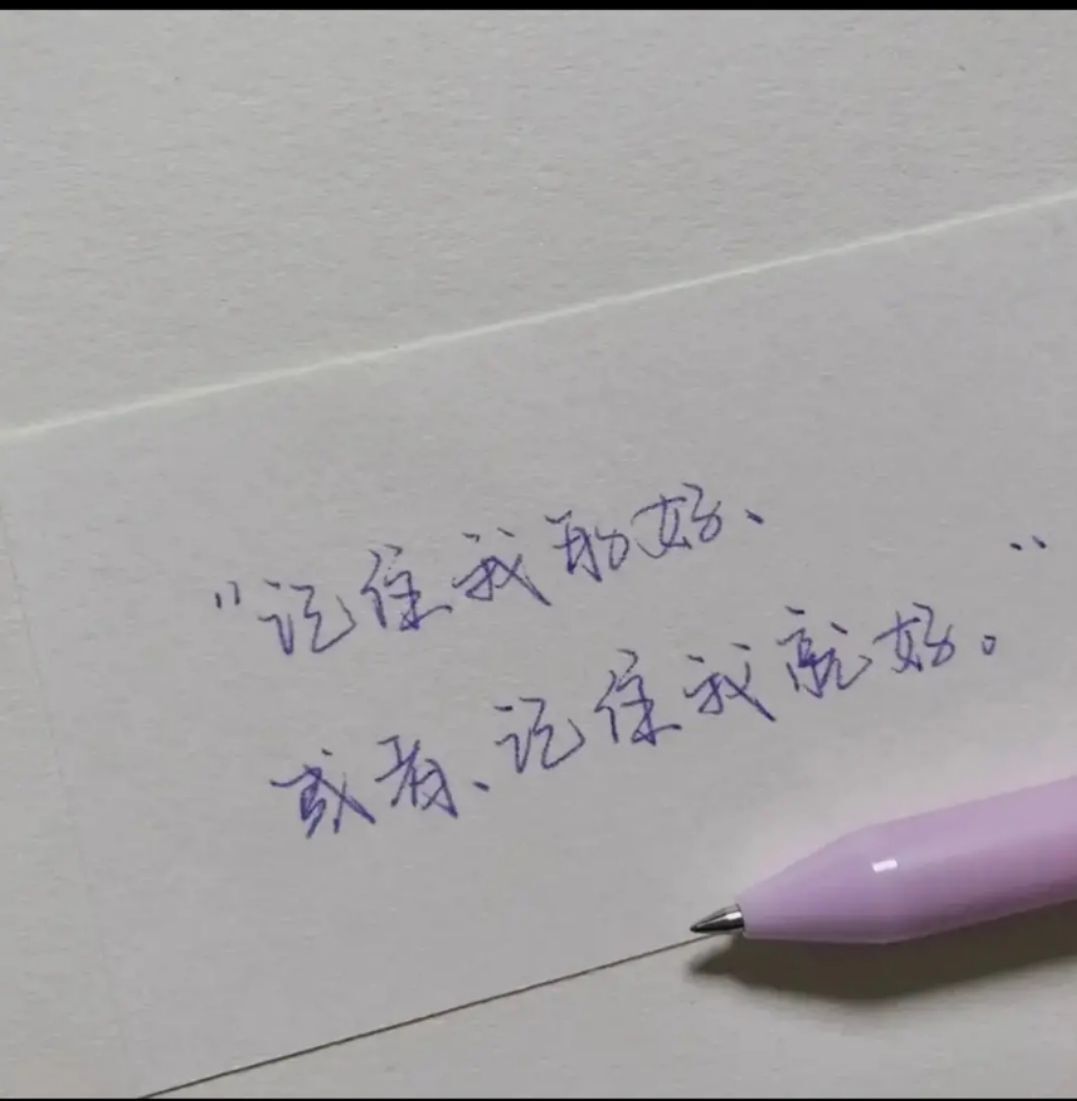 "记住我的好、
或者、记住我就好。"